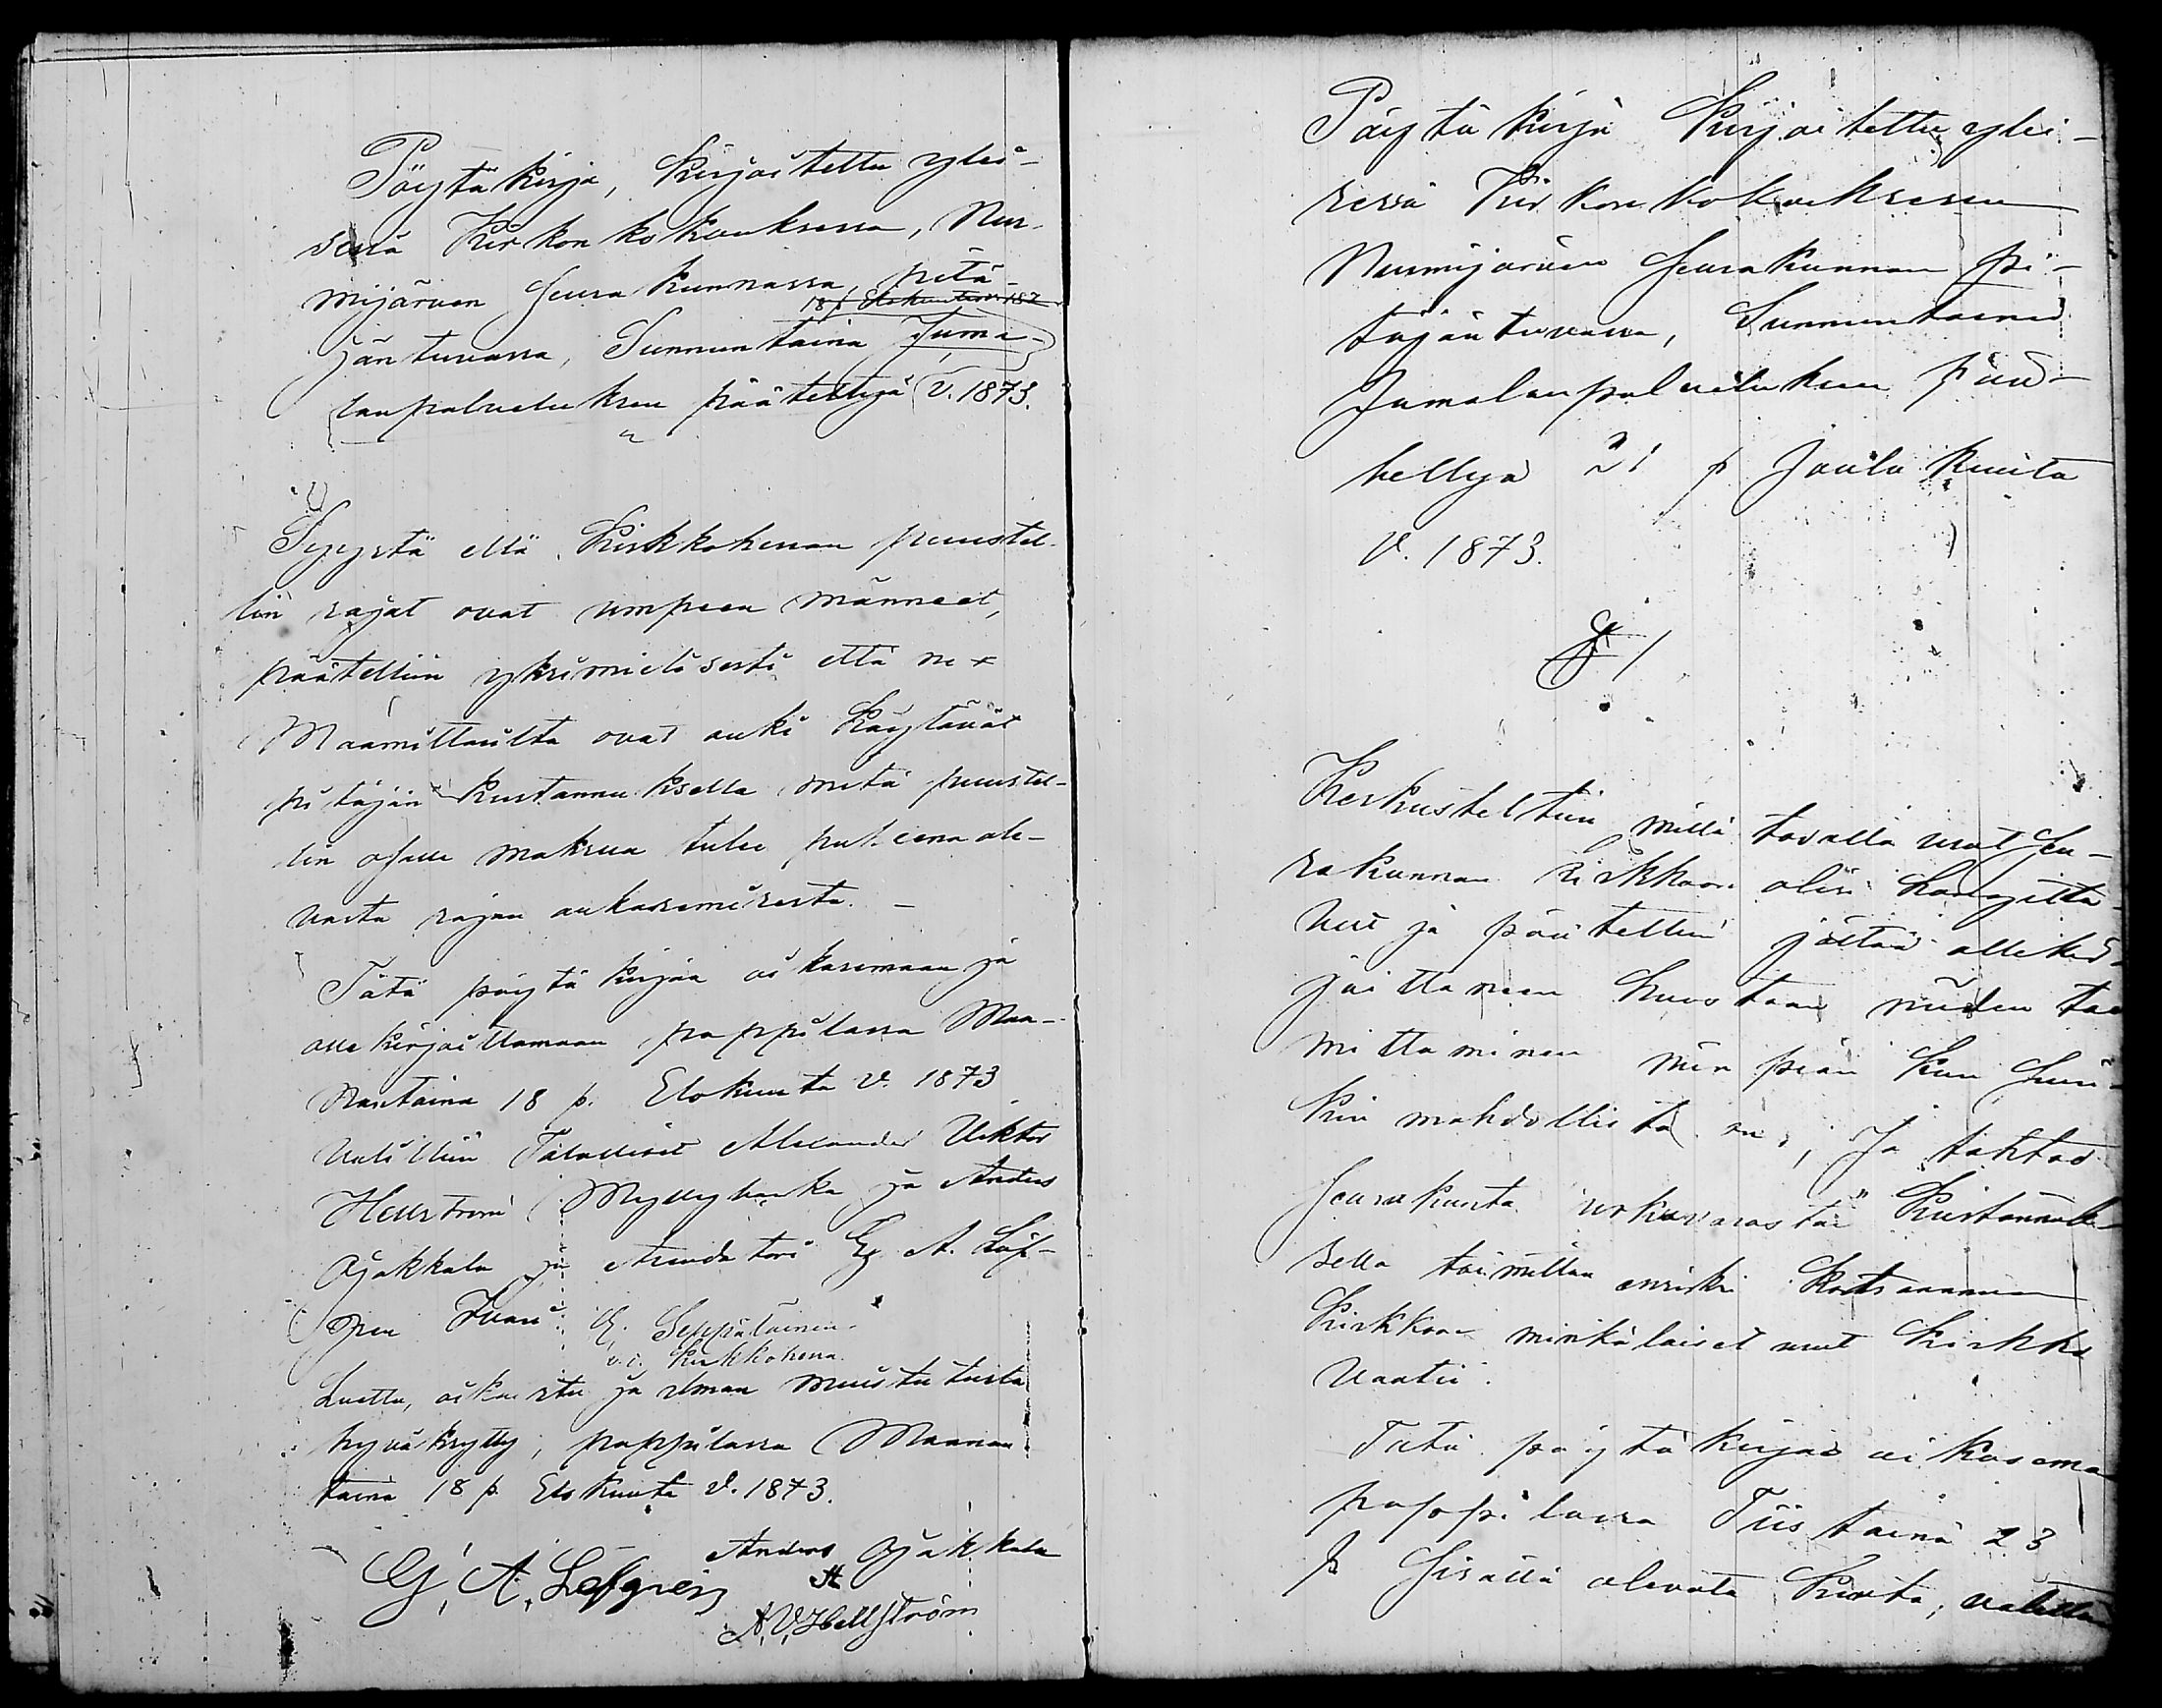 Pöytäkirja, Kirjoitettu ylei-
sessä Kirkonkokouksessa, Nur-
mijärven Seurakunnassa, pitä-
18 p. Elokuuta v. 187
jäntuvassa, Sunnuntaina Juma-
lanpalveluksen päätettyä v. 1873.
Syystä että Kirkkoherran puustel-
lin rajat ovat umpeen männeet,
päätettiin yksimielisesti että ne
Maamittarilta ovat auki käytävät
pitäjän kustannuksella mitä puustel-
lin osalle maksua tulee puheena ole-
vasta rajan aukasemisesta. -
Tätä pöytäkirjaa oikasemaan ja
allekirjoittamaan pappilassa Maa-
nantaina 18 p. Elokuuta v. 1873
Valittiin Talolliset Alexander Viktor
Hellström Myllyhaka ja Anders
Ojakkala ja Arendatori G. A. Löf-
gren
G. Seppälainen
v. t. Kirkkoherra.
Luettu, oikaistu ja ilman muistutusta
hyväksytty, pappilassa Maanan
taina 18 p. Elokuuta v. 1873.
Anders Ojakkala
G. A. Löfgren
A. V. Hellström
Pöytäkirja Kirjoitettu ylei-
sessä Kirkonkokouksessa
Nurmijärven Seurakunnan pi-
täjäntuvassa, Sunnuntaina
Jumalanpalveluksen pää-
tettyä 21 p Joulukuuta
V. 1873.
§ 1
Keskusteltiin millä tavalla urut Seu-
rakunnan kirkkoon olisi hangitta-
vat ja päätettiin jättää alleskir-
joittaneen huostaan niiden toi
mittaminen niin pian kun suin-
kin mahdollista on, Ja tahtoo
Seurakunta urkuvarasten kustannuk-
sella toimittaa
Kirkkoon minkälaiset urut Kirkko
Vaatii.
Tätä pöytäkirjaa oikasema
pappilassa Tiistaina 23
p Sisällä olevata Kuuta, valittiin